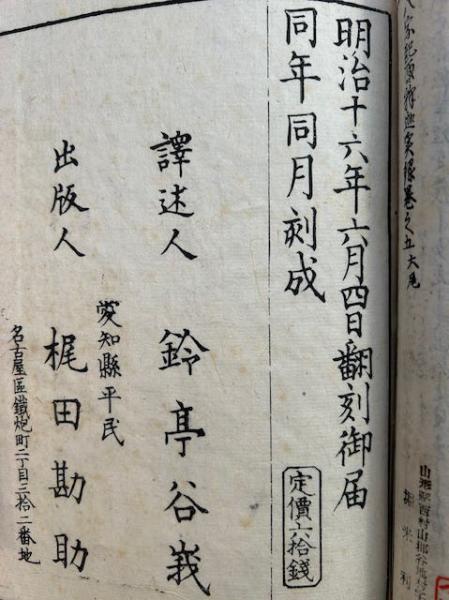 卷之五大尾
明治十六年六月四日翻刻御届
同年同月刻成
定價六拾錢
譯述人 鈴亭谷峩
愛知縣平民
出版人 梶田勘助
名古屋區鐵炮町二丁目三拾二番地